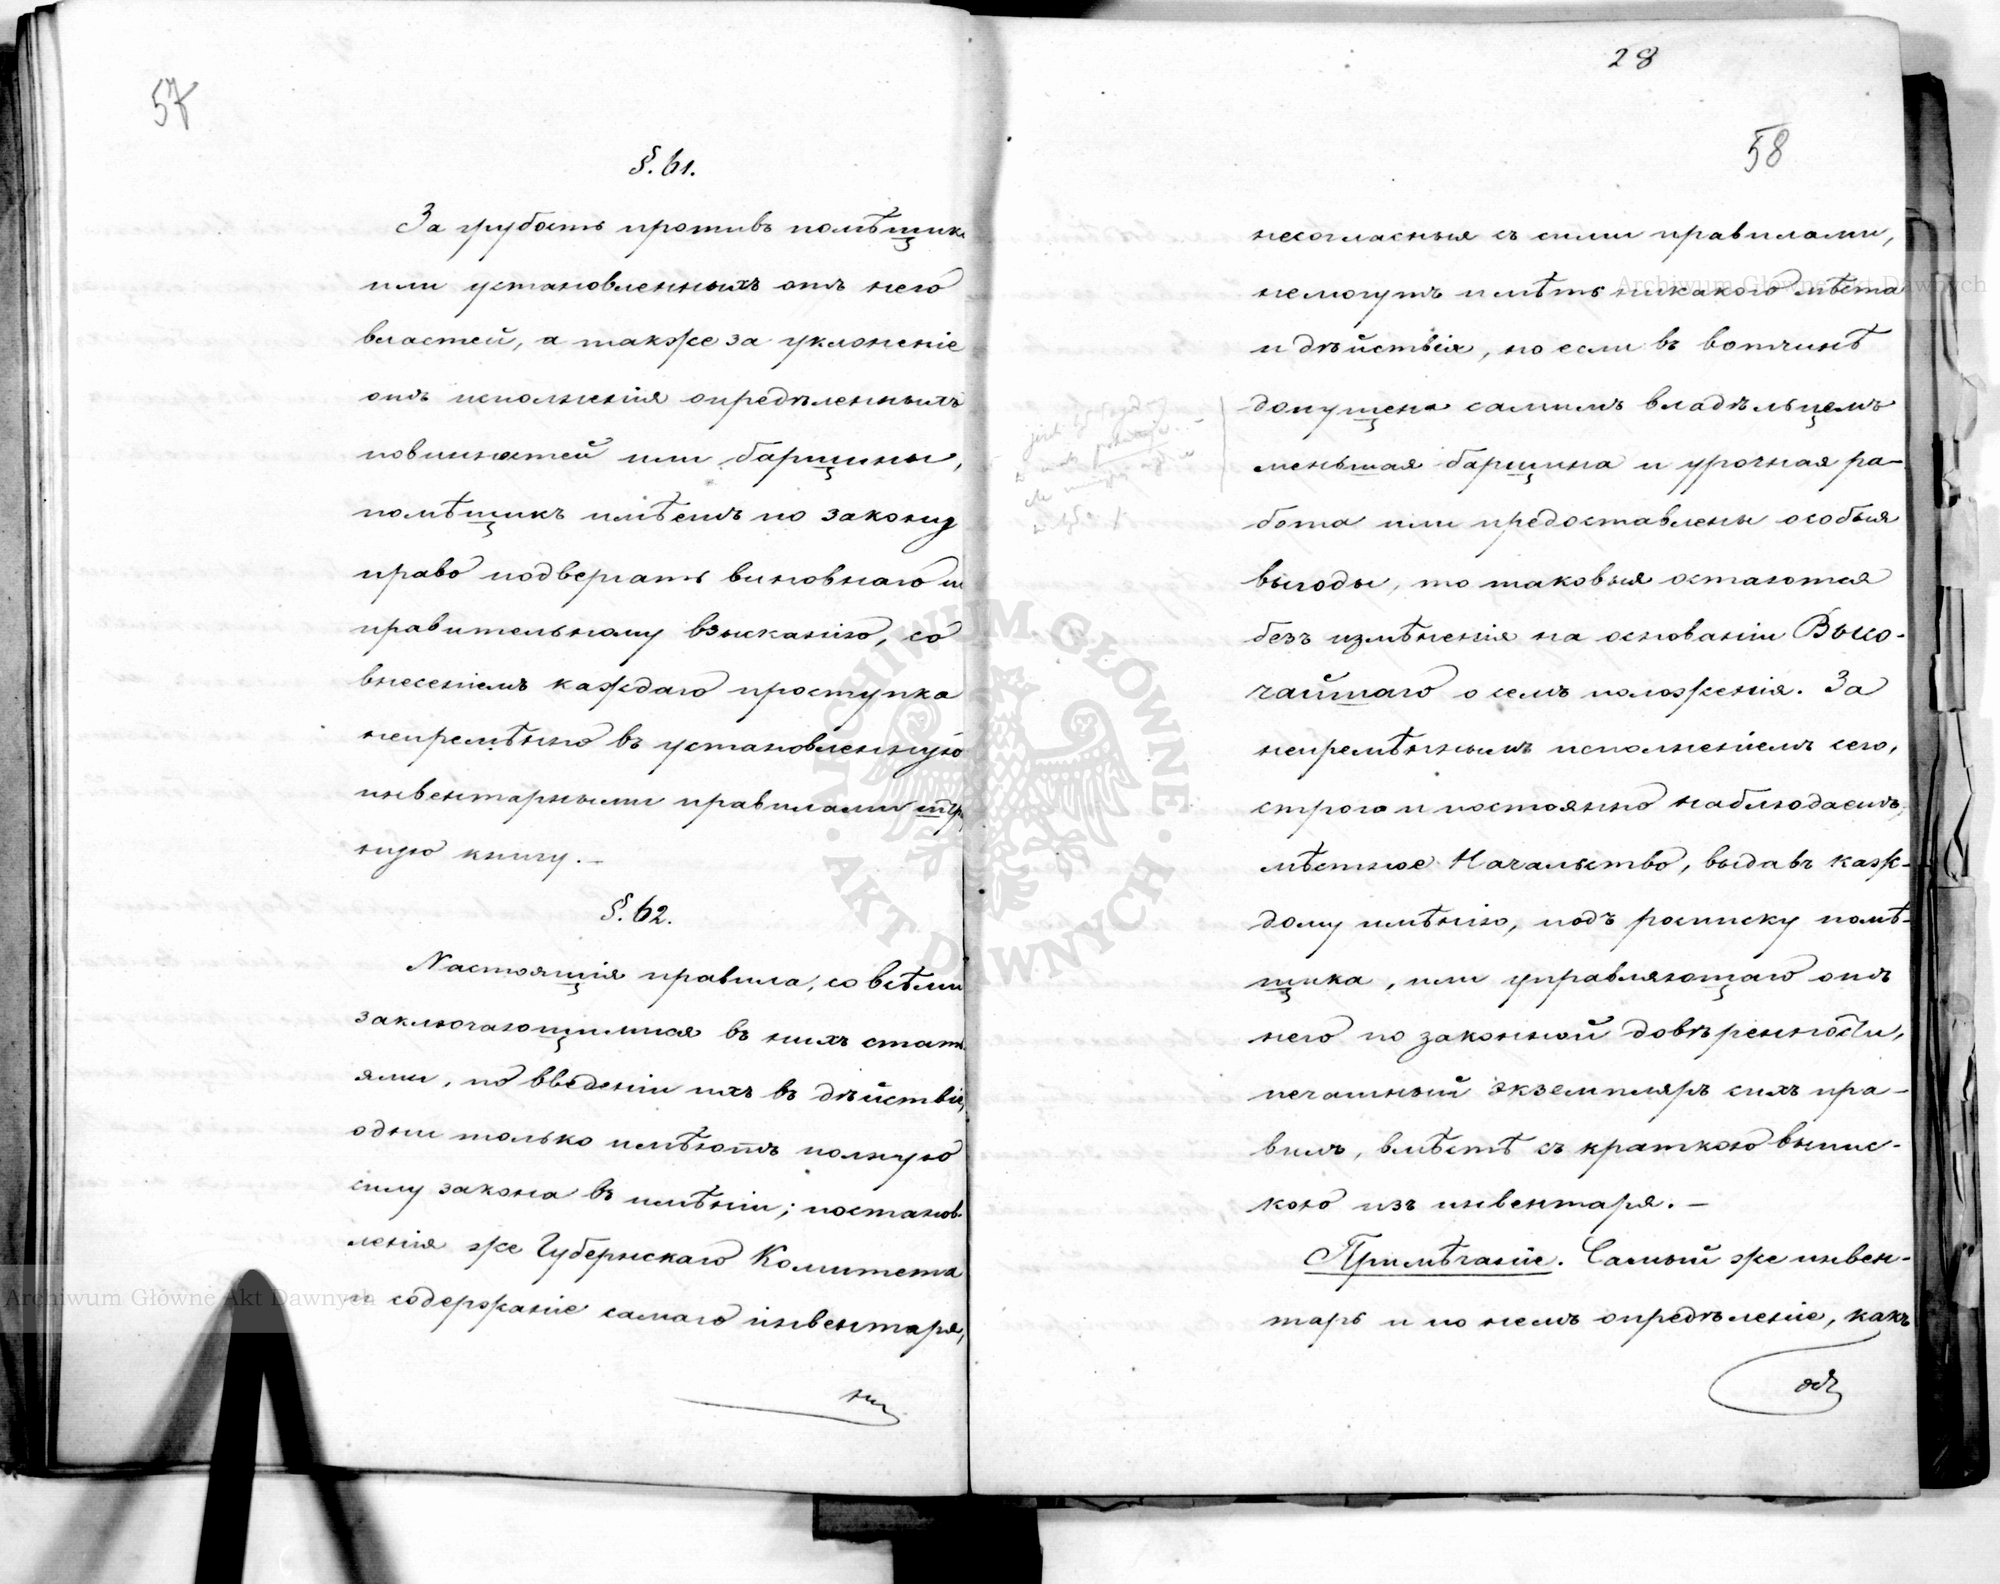 57
§. 61.
За грубость противъ помѣщика
или установленныхъ отъ него
властей, а также за уклоненіе
отъ исполненія опредѣленныхъ
повинностей или барщины,
помѣщикъ имѣетъ по закону
право подвергать виновнаго ис
правительному взысканію, со
внесеніемъ каждаго проступка
непремѣнно въ установленную
инвентарными правилами штра
ную книгу. —
§. 62.
Настоящія правила, со всѣми
заключающимися въ нихъ стать
ями, по введеніи ихъ въ дѣйствіе,
одни только имѣютъ полную
силу закона въ имѣніи; постанов-
ленія же Губернскаго Комитета
и содержаніе самаго инвентаря,
28
58
несогласныя съ сими правилами,
немогутъ имѣть никакого мѣста
и дѣйствія, но если въ вотчинѣ
допущена самимъ владѣльцемъ
меньшая барщина и урочная ра-
бота или предоставлены особыя
выгоды, то таковыя остаются
безъ измѣненія на основаніи Высо-
чайшаго о семъ положенія. За
непремѣннымъ исполненіемъ сего,
строго и постоянно наблюдаетъ
мѣстное Начальство, выдавъ каж-
дому имѣнію, подъ росписку помѣ-
щика, или управляющаго отъ
него по законной довѣренности,
печатный экземпляръ сихъ пра-
вилъ, вмѣстѣ съ краткою выпис-
кою изъ инвентаря. —
Примѣчаніе. Самый же инвен-
тарь и по немъ опредѣленіе, какъ
Archiwum Główne Akt Dawnych
Archiwum Główne Akt Dawnych
ARCHIWUM GŁÓWNE · AKT DAWNYCH ·